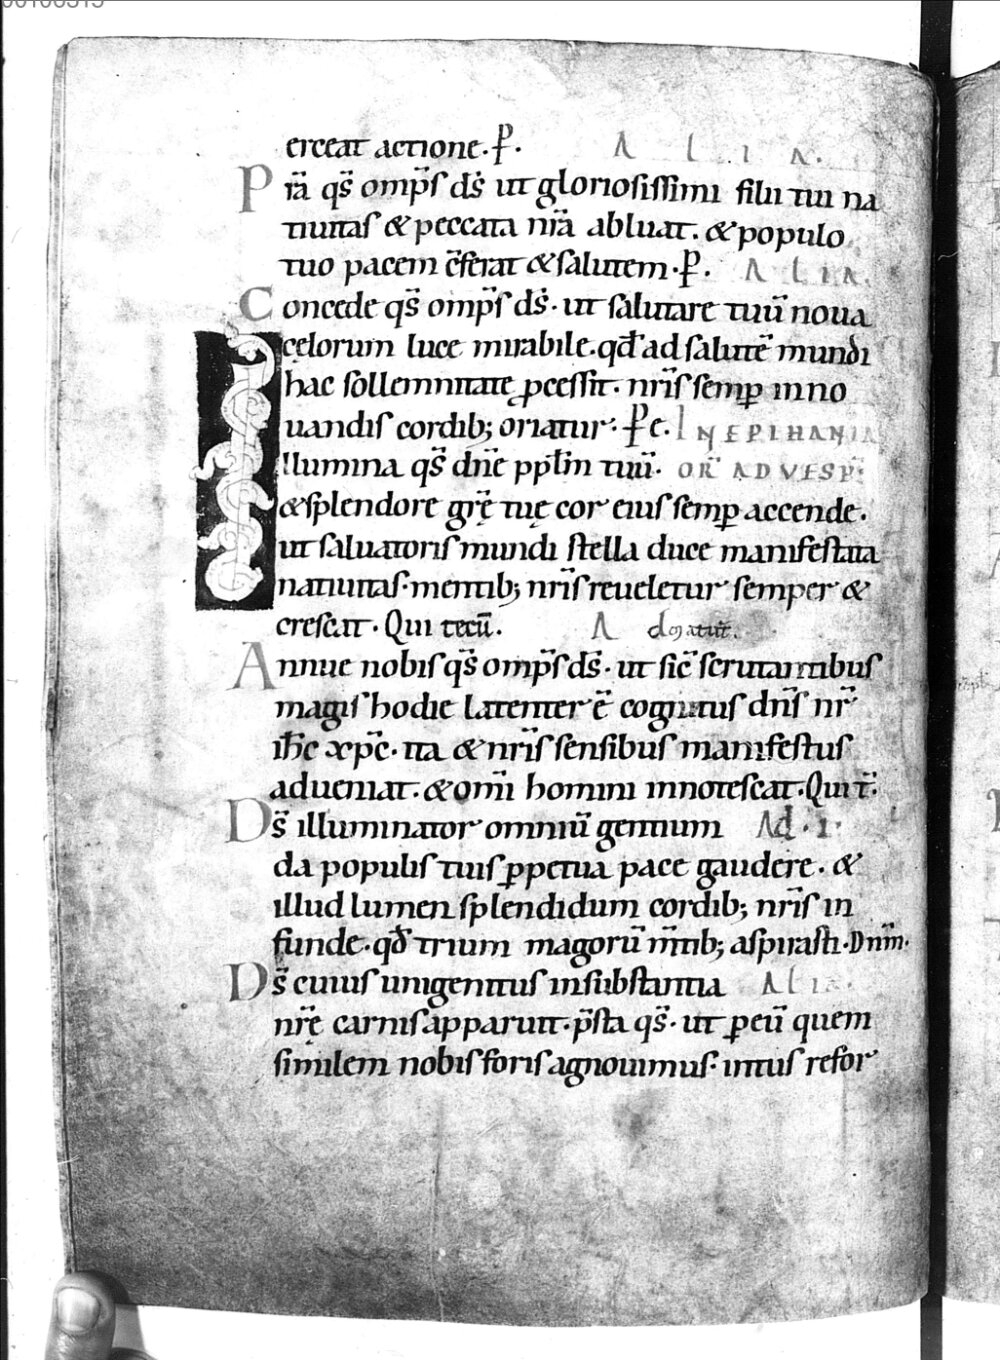 erceat actione. p̄. A L I A.
P r̄a qs̄ omp̄s ds̄ ut gloriosissimi filii tui na
tiuitas & peccata nr̄a abluat. & populo
tuo pacem c̄ferat & salutem. p̄. A L I A.
Concede qs̄ omp̄s ds̄. ut salutare tuū noua
cęlorum luce mirabile. qđ ad salutē mundi
hac sollemnitate ꝓcessit. nr̄is semꝑ inno
uandis cordib; oriatur. p̄ c. IN EPIPHANIA
Illumina qs̄ dn̄e ppl̄m tuū. OR̄ AD VESP̄.
& splendore gr̄ę tuę cor eius semꝑ accende.
ut saluatoris mundi stella duce manifestata
natiuitas. mentib; nr̄is reueletur semper &
crescat. Qui tecū. A d
Annue nobis qs̄ omp̄s ds̄. ut sic̄ scrutantibus
magis hodie latenter ē cognitus dn̄s nr̄
ih̄c xp̄c. ita & nr̄is sensibus manifestus
adueniat. & om̄i homini innotescat. Qui t̄.
Ds̄ illuminator omniū gentium Ad. I.
da populis tuis ꝑpetua pace gaudere. &
illud lumen splendidum cordib; nr̄is in
funde. qđ trium magorū m̄tib; aspirasti. Dnm̄.
Ds̄ cuius unigenitus in substantia ALIA.
nr̄ę carnis apparuit. p̄sta qs̄. ut ꝑ eū quem
similem nobis foris agnouimus. intus refor